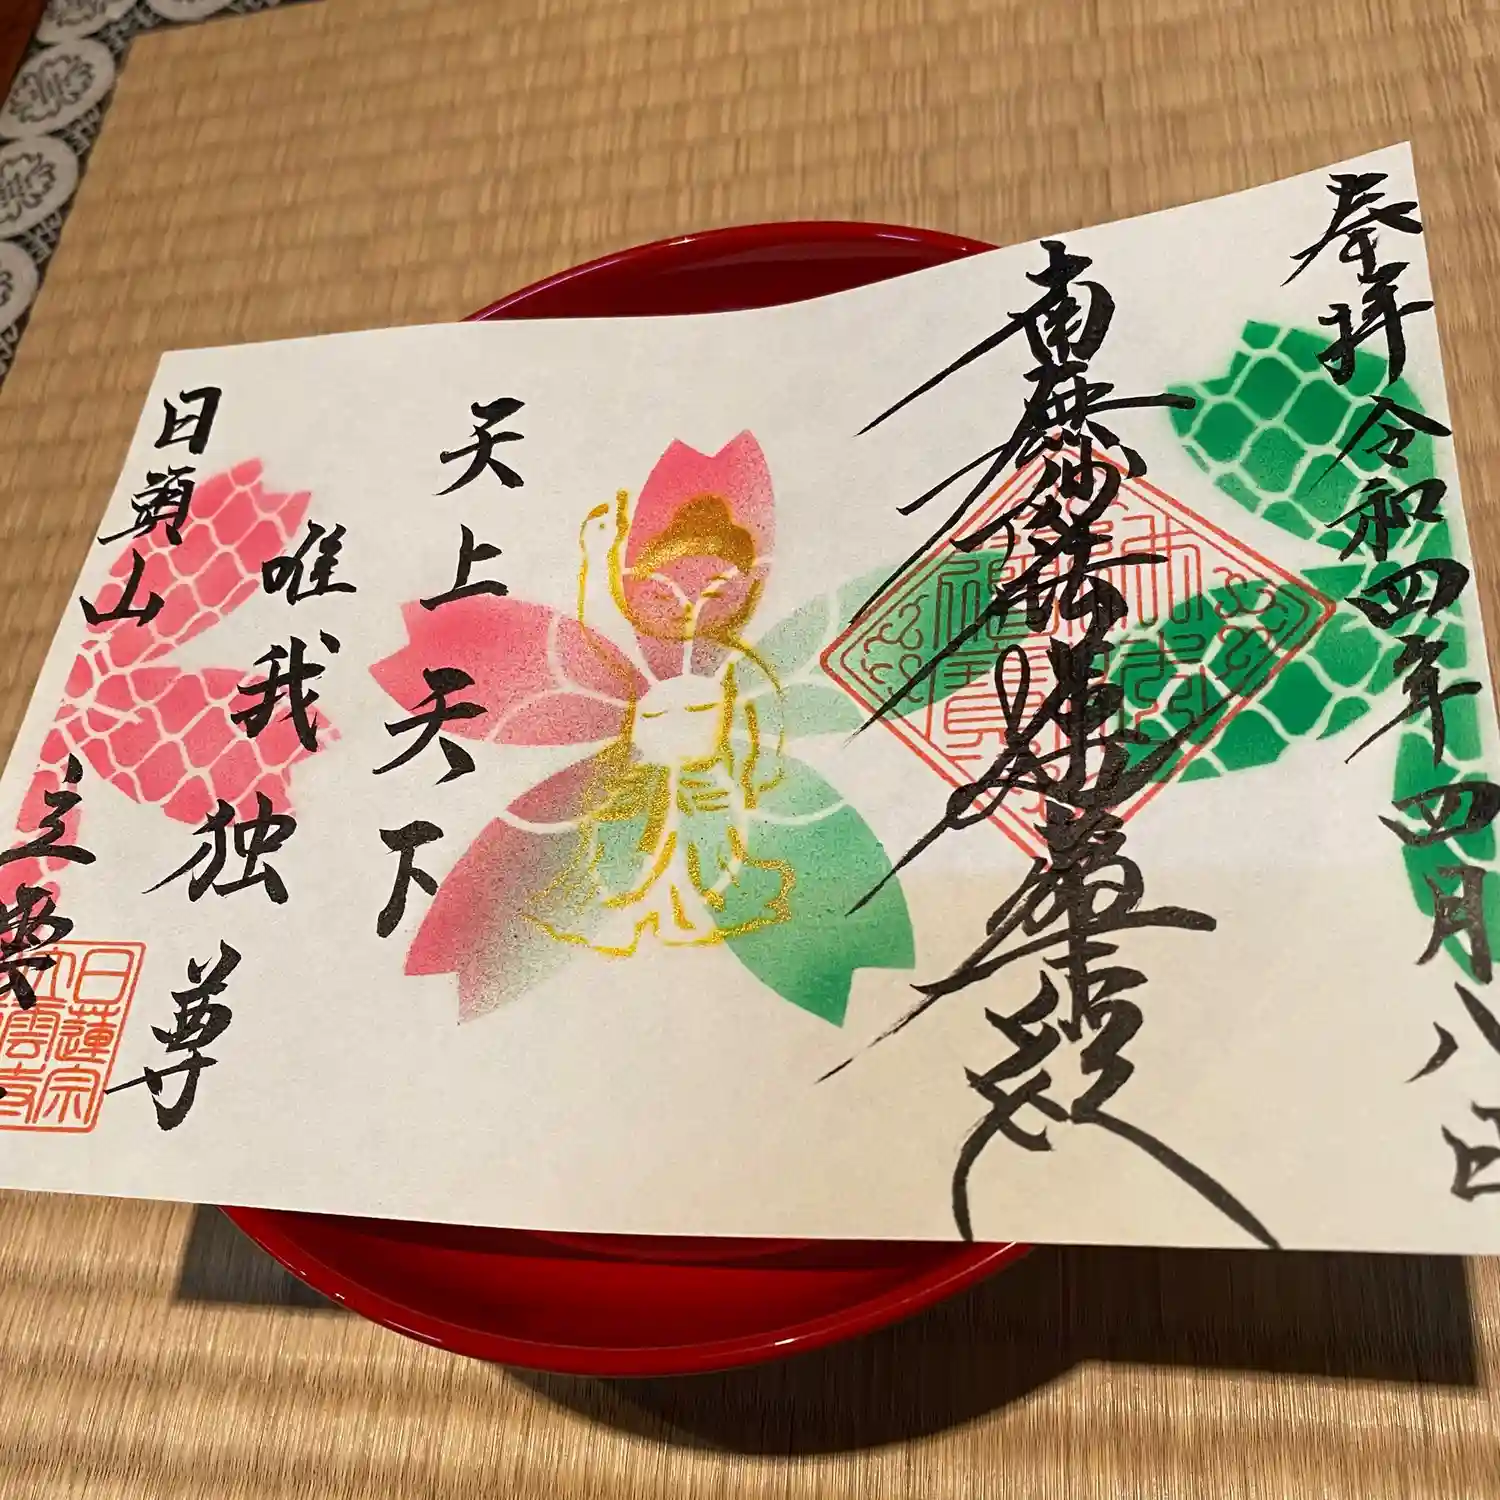 奉拝 令和四年四月八日
南無妙法蓮華経
天上天下
唯我独尊
日頭山 立雲
日蓮宗
立雲寺